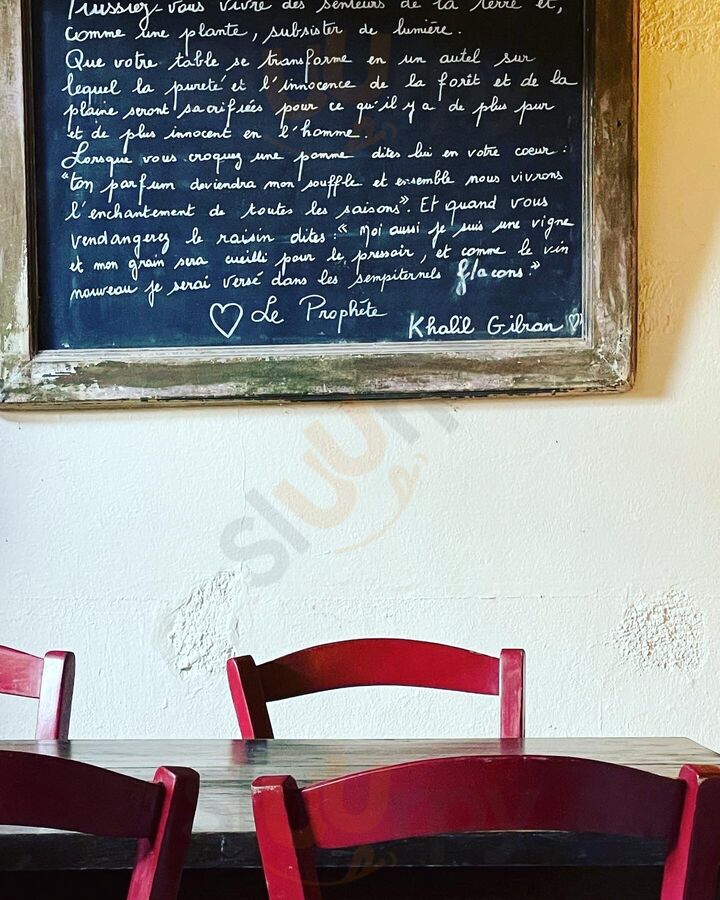 Puissiez-vous vivre des senteurs de la terre et,
comme une plante, subsister de lumière.
Que votre table se transforme en un autel sur
lequel la pureté et l'innocence de la forêt et de la
plaine seront sacrifiées pour ce qu'il y a de plus pur
et de plus innocent en l'homme.
Lorsque vous croquez une pomme dites lui en votre coeur :
"ton parfum deviendra mon souffle et ensemble nous vivrons
l'enchantement de toutes les saisons". Et quand vous
vendangerez le raisin dites : "Moi aussi je suis une vigne
et mon grain sera cueilli pour le pressoir, et comme le vin
nouveau je serai versé dans les sempiternels flacons."
Le Prophète
Khalil Gibran
sluurpy